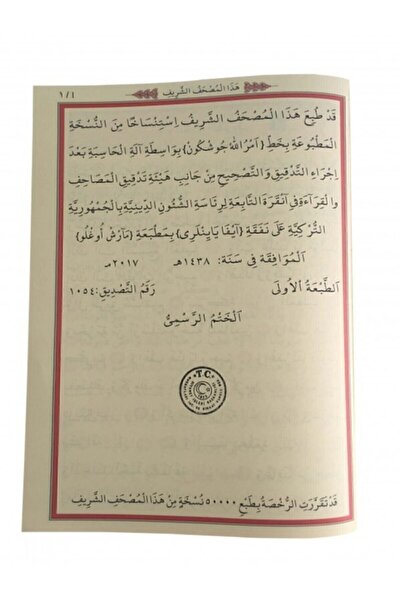 هَذَا الْمُصْحَفُ الشَّرِيفُ
١/١
قَدْ طُبِعَ هَذَا الْمُصْحَفُ الشَّرِيفُ اِسْتِنْسَاخًا مِنَ النُّسْخَةِ
الْمَطْبُوعَةِ بِخَطِّ {اَمْرُ اللهِ جُوشْكُونْ} بِوَاسِطَةِ آلَةِ الْحَاسِبَةِ بَعْدَ
اِجْرَاءِ التَّدْقِيقِ وَالتَّصْحِيحِ مِنْ جَانِبِ هَيْئَةِ تَدْقِيقِ الْمَصَاحِفِ
وَالْقِرَاءَةِ فِي اَنْقَرَةَ التَّابِعَةِ لِرِئَاسَةِ الشُّئُونِ الدِّينِيَّةِ بِالْجُمْهُورِيَّةِ
التُّرْكِيَّةِ عَلَى نَفَقَةِ {آيْفَا يَايِنْلَرِى} بِمَطْبَعَةِ {مَارْشْ اُوغْلُو}
اَلْمُوَافِقَةِ فِي سَنَةِ: ١٤٣٨هـ ٢٠١٧مـ
اَلطَّبْعَةُ الْاُولَى رَقَمُ التَّصْدِيقِ: ١٠٥٤
اَلْخَتْمُ الرَّسْمِىُّ
T.C.
قَدْ تَقَرَّرَتِ الرُّخْصَةُ بِطَبْعِ ٥٠٠٠٠ نُسْخَةٍ مِنْ هَذَا الْمُصْحَفِ الشَّرِيفِ